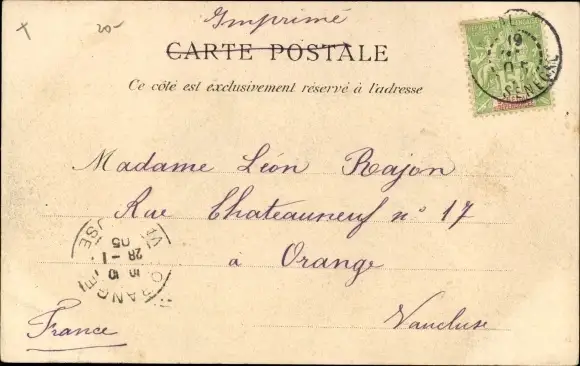 20-
Imprimé
CARTE POSTALE
Ce côté est exclusivement réservé à l'adresse
SENEGAL
Madame Léon Rajon
Rue Chateauneuf n° 17
à Orange
Vaucluse
France
ORANGE
28 - 1
05